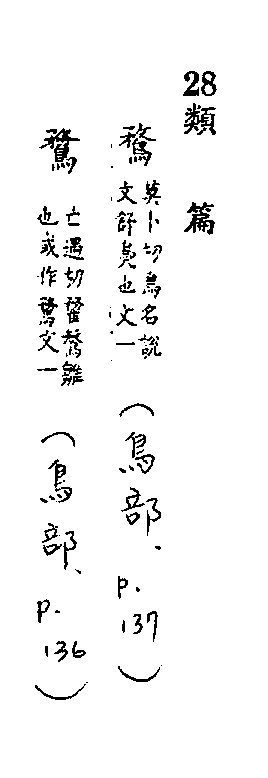 28類 篇
鶩 莫卜切鳥名說
文舒鳧也文一
(鳥部、p.137)
亡遇切鶩雛
也或作文一
(鳥部、p.136)